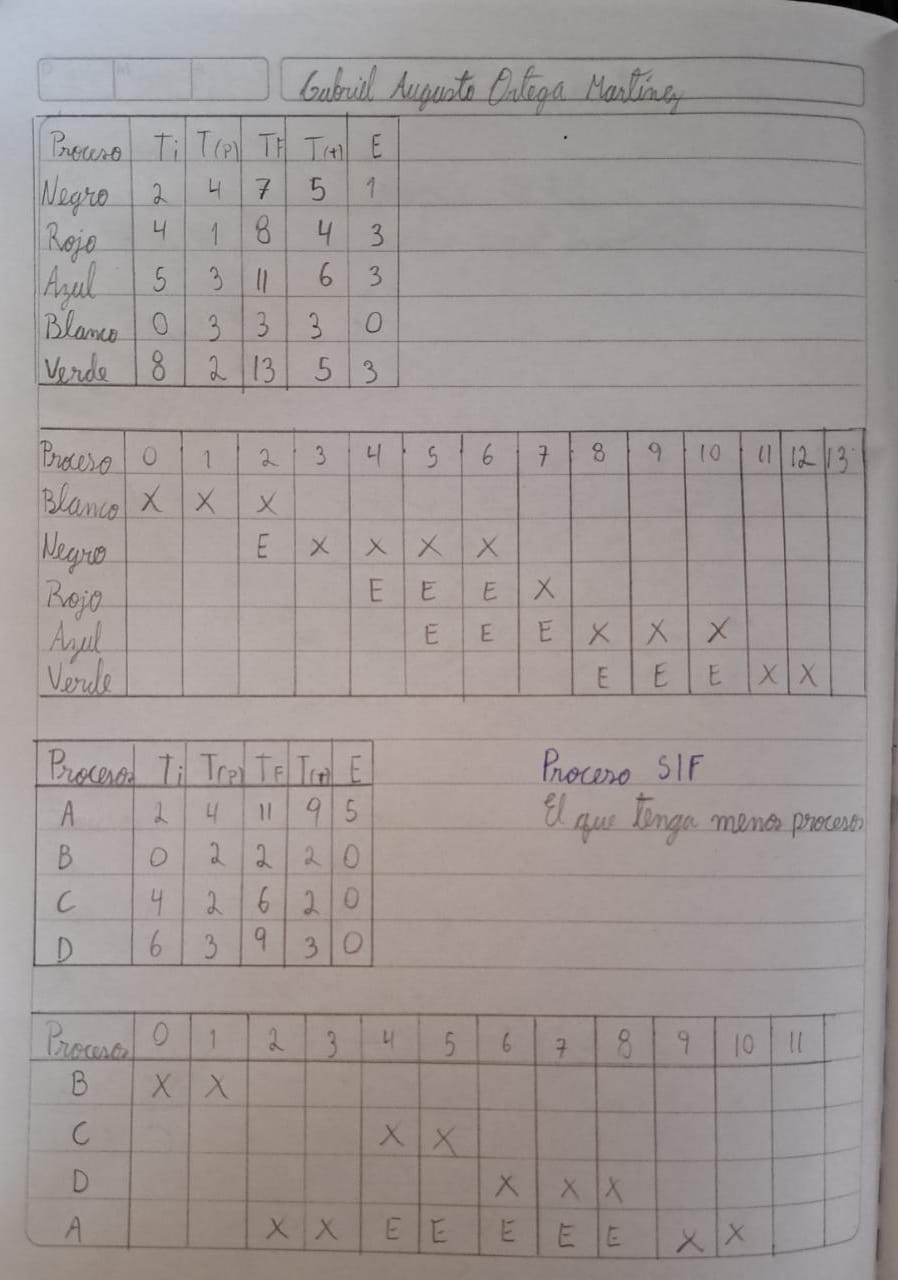 Gabriel Augusto Ortega Martínez
Proceso Ti T(P) TF T(t) E
Negro 2 4 7 5 1
Rojo 4 1 8 4 3
Azul 5 3 11 6 3
Blanco 0 3 3 3 0
Verde 8 2 13 5 3
Proceso 0 1 2 3 4 5 6 7 8 9 10 11 12 13
Blanco X X X
Negro E X X X X
Rojo E E E X
Azul E E E X X X
Verde E E E X X
Procesos Ti T(P) TF T(t) E
A 2 4 11 9 5
B 0 2 2 2 0
C 4 2 6 2 0
D 6 3 9 3 0
Proceso SIF
El que tenga menos procesos
Procesos 0 1 2 3 4 5 6 7 8 9 10 11
B X X
C X X
D X X X
A X X E E E E E X X